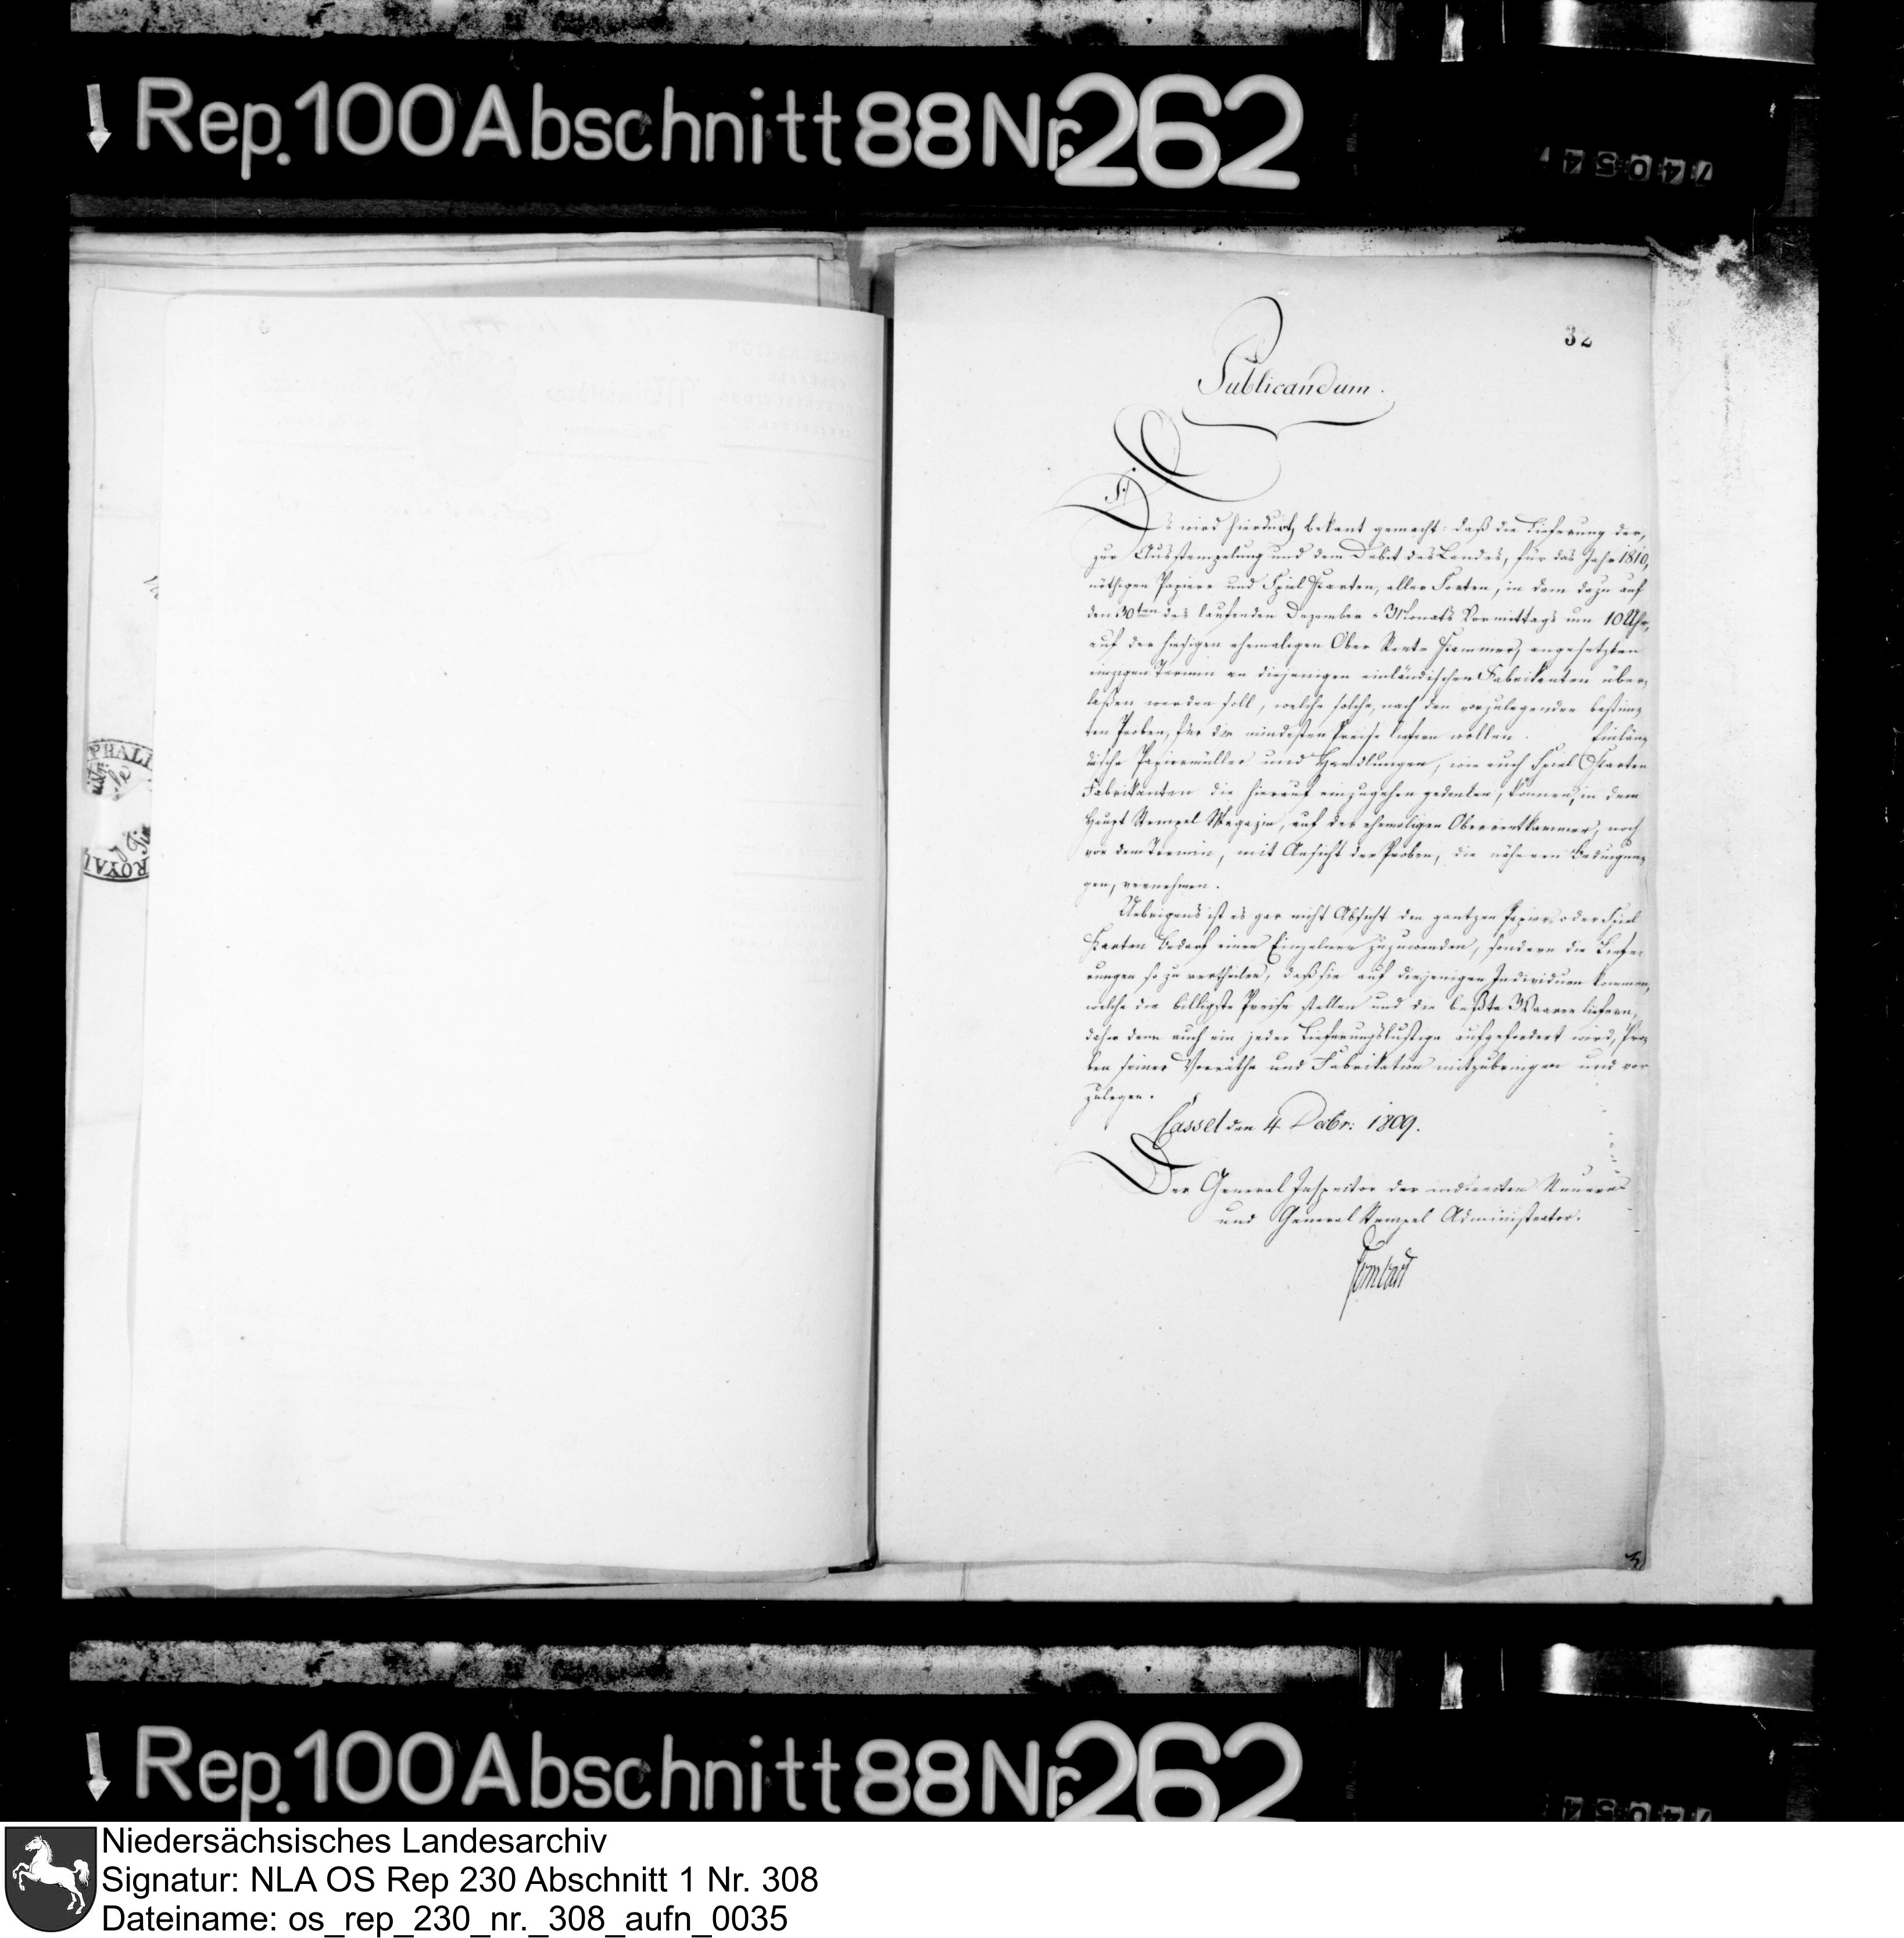 Rep. 100 Abschnitt 88 Nr. 262
74054
32
Publicandum.
Es wird hierdurch bekant gemacht: daß die Lieferung der,
zur Ausstempelung und dem Debit des Landes, für das Jahr 1810,
nöthigen Papiere und Spiel Karten, aller Sorten, in dem dazu auf
den 30ten des laufenden Dezember-Monats Vormittags um 10 Uhr,
auf der hiesigen ehemaligen Ober Rent-Kammer, angesetzten
einzigen Termin an diejenigen einländischen Fabrikanten über,
laßen werden soll, welche solche, nach den vorzulegenden bestim,
ten Proben, für die mindesten Preise liefern wollen. Einlän,
dische Papiermüller und Handlungen, wie auch Spiel Charten
Fabrikanten die hierauf einzugehen gedenken, können, in dem
Haupt Stempel Magazin, auf der ehemaligen Oberrentkammer, noch
vor dem Termin, mit Ansicht der Proben, die näheren Bedingun,
gen, vernehmen.
Uebrigens ist es gar nicht Absicht den gantzen Papier oder Spiel
Karten Bedarf einen Einzelnen zuzuwenden, sondern die Liefe-
rungen so zu vertheilen, daß sie auf diejenigen Individuen kommen,
welche die billigste Preise stellen und die beßte Waaren liefern,
daher denn auch ein jeder Lieferungslustige aufgefordert wird, Pro,
ben seiner Vorräthe und Fabrikation mitzubringen und vor
zulegen.
Cassel den 4 Decbr: 1809.
Der General Inspector der indirecten Steuern
und General Stempel Administrator.
PHALI
ROYAL
Rep. 100 Abschnitt 88 Nr. 262
Niedersächsisches Landesarchiv
Signatur: NLA OS Rep 230 Abschnitt 1 Nr. 308
Dateiname: os_rep_230_nr._308_aufn_0035